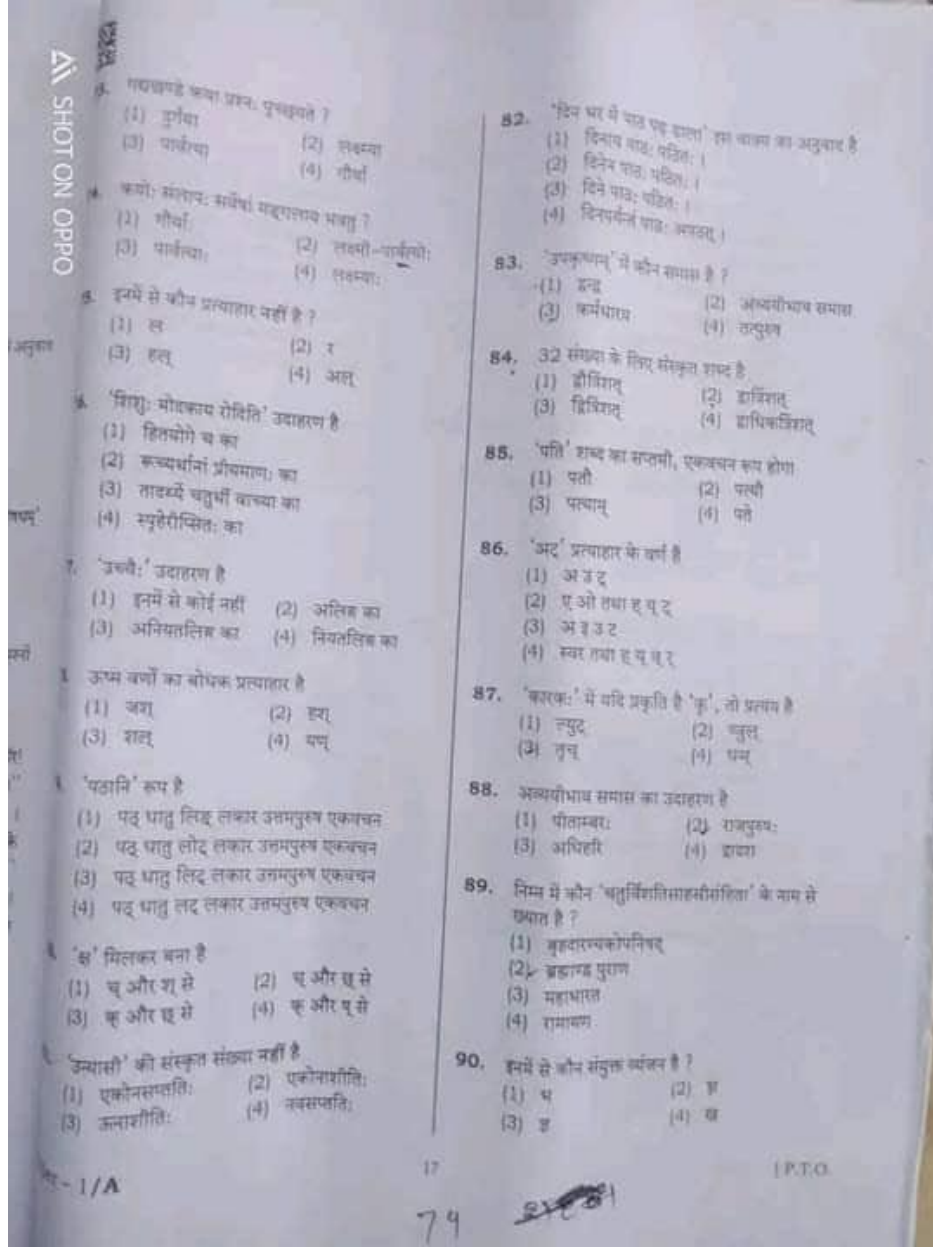 SHOT ON OPPO
गद्यखण्डे कया प्रश्नः पृच्छ्यते ?
(1) दुर्गया
(2) लक्ष्म्या
(3) पार्वत्या
(4) गौर्या
कयोः संलापः सर्वेषां मङ्गलाय भवतु ?
(1) गौर्याः
(2) लक्ष्मी-पार्वत्योः
(3) पार्वत्याः
(4) लक्ष्म्याः
इनमें से कौन प्रत्याहार नहीं है ?
(1) ल
(2) र
(3) हल्
(4) अल्
'शिशुः मोदकाय रोदिति' उदाहरण है
(1) हितयोगे च का
(2) रूच्यर्थानां प्रीयमाणः का
(3) तादर्थ्ये चतुर्थी वाच्या का
(4) स्पृहेरीप्सितः का
7. 'उच्चैः' उदाहरण है
(1) इनमें से कोई नहीं
(2) अलिङ्ग का
(3) अनियतलिङ्ग का
(4) नियतलिङ्ग का
ऊष्म वर्णों का बोधक प्रत्याहार है
(1) जश्
(2) हश्
(3) शल्
(4) यण्
'पठानि' रूप है
(1) पठ् धातु लिङ् लकार उत्तमपुरुष एकवचन
(2) पठ् धातु लोट् लकार उत्तमपुरुष एकवचन
(3) पठ् धातु लिट् लकार उत्तमपुरुष एकवचन
(4) पठ् धातु लट् लकार उत्तमपुरुष एकवचन
'क्ष' मिलकर बना है
(1) च् और श् से
(2) च् और छ् से
(3) क् और छ् से
(4) क् और ष् से
'उन्यासी' की संस्कृत संख्या नहीं है
(1) एकोनसप्ततिः
(2) एकोनाशीतिः
(3) ऊनाशीतिः
(4) नवसप्ततिः
- 1/A
82. 'दिन भर में पाठ पढ़ डाला' इस वाक्य का अनुवाद है
(1) दिनाय पाठः पठितः ।
(2) दिनेन पाठः पठितः ।
(3) दिने पाठः पठितः ।
(4) दिनपर्यन्तं पाठः अपठत् ।
83. 'उपकृष्णम्' में कौन समास है ?
(1) द्वन्द्व
(2) अव्ययीभाव समास
(3) कर्मधारय
(4) तत्पुरुष
84. 32 संख्या के लिए संस्कृत शब्द है
(1) द्वौत्रिंशत्
(2) द्वात्रिंशत्
(3) द्वित्रिंशत्
(4) द्वाधिकत्रिंशत्
85. 'पति' शब्द का सप्तमी, एकवचन रूप होगा
(1) पतौ
(2) पत्यौ
(3) पत्याम्
(4) पते
86. 'अट्' प्रत्याहार के वर्ण हैं
(1) अ उ ट्
(2) ए ओ तथा ह् य् ट्
(3) अ इ उ ट
(4) स्वर तथा ह् य् व् र्
87. 'कारकः' में यदि प्रकृति है 'कृ', तो प्रत्यय है
(1) ल्युट्
(2) ण्वुल्
(3) तृच्
(4)
88. अव्ययीभाव समास का उदाहरण है
(1) पीताम्बरः
(2) राजपुरुषः
(3) अधिहरि
(4) द्वादश
89. निम्न में कौन 'चतुर्विंशतिसाहस्रीसंहिता' के नाम से
ख्यात है ?
(1) बृहदारण्यकोपनिषद्
(2) ब्रह्माण्ड पुराण
(3) महाभारत
(4) रामायण
90. इनमें से कौन संयुक्त व्यंजन है ?
(1)
(2)
(3)
(4) ख
17
[ P.T.O.
79